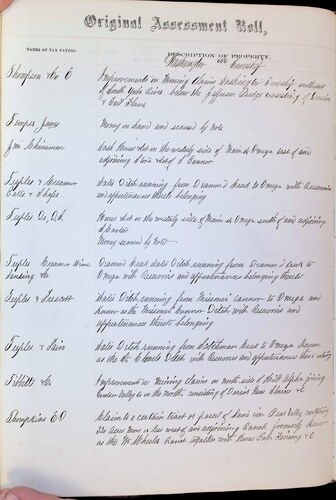 Original Assessment Roll,
NAMES OF TAX PAYERS
DESCRIPTION OF PROPERTY.
Washington Township
Thompson Co E
Improvements on Mining Claims Washington Township south
of South Yuba River below the Jefferson Bridge consisting of
& Flume
Temper James
Money on hand and secured by note
Jim Chinaman
House & Lot on the westerly side of Main st Omega east of and
adjoining lot of O'Connor
Teeples & Creamer
Water Ditch running from Diamond Creek to Omega with Reservoirs
and appurtenances thereto belonging
Teeples Dr.
House & Lot on the westerly side of Main st Omega south of and adjoining
Money secured by Note
Teeples Creamer
Diamond Creek Water Ditch running from Diamond Creek to
& Co
Omega with Reservoirs and appurtenances belonging thereto
Teeples & Prescott
Water Ditch running from Missouri Cannon to Omega and
Known as the Missouri Cannon Ditch with Reservoirs and
appurtenances thereto belonging
Teeples &
Water Ditch running from Scotchman Creek to Omega known
as the Ditch with Reservoirs and appurtenances thereto belonging
Tibbitts & Co
Improvements on Mining claims on north side of joining
on the north, consisting of House &c
Thompkins E D
Claim to a certain tract or parcel of Land in Bear Valley containing
320 Acres more or less west of and adjoining Ranch formerly known
as the Ranch together with House Barn Fencing &c